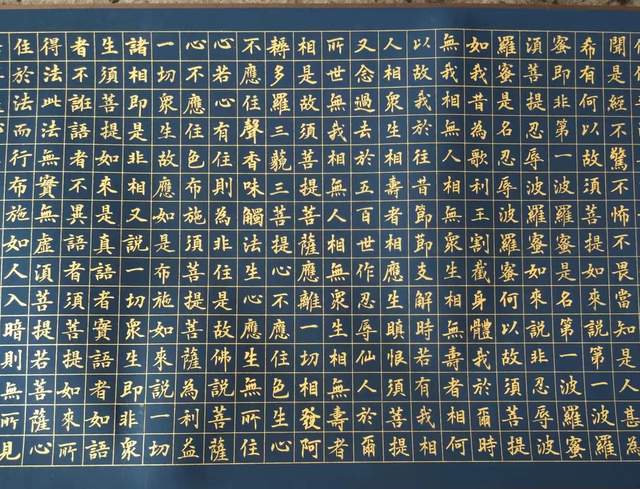 聞是經不驚不怖不畏當知是人甚為
希有何以故須菩提如來說第一波羅
蜜即非第一波羅蜜是名第一波羅蜜
須菩提忍辱波羅蜜如來說非忍辱波
羅蜜是名忍辱波羅蜜何以故須菩提
如我昔為歌利王割截身體我於爾時
無我相無人相無眾生相無壽者相何
以故我於往昔節節支解時若有我相
人相眾生相壽者相應生瞋恨須菩提
又念過去於五百世作忍辱仙人於爾
所世無我相無人相無眾生相無壽者
相是故須菩提菩薩應離一切相發阿
耨多羅三藐三菩提心不應住色生心
不應住聲香味觸法生心應生無所住
心若心有住則為非住是故佛說菩薩
心不應住色布施須菩提菩薩為利益
一切眾生故應如是布施如來說一切
諸相即是非相又說一切眾生即非眾
生須菩提如來是真語者實語者如語
者不誑語者不異語者須菩提如來所
得法此法無實無虛須菩提若菩薩心
住於法而行布施如人入暗則無所見